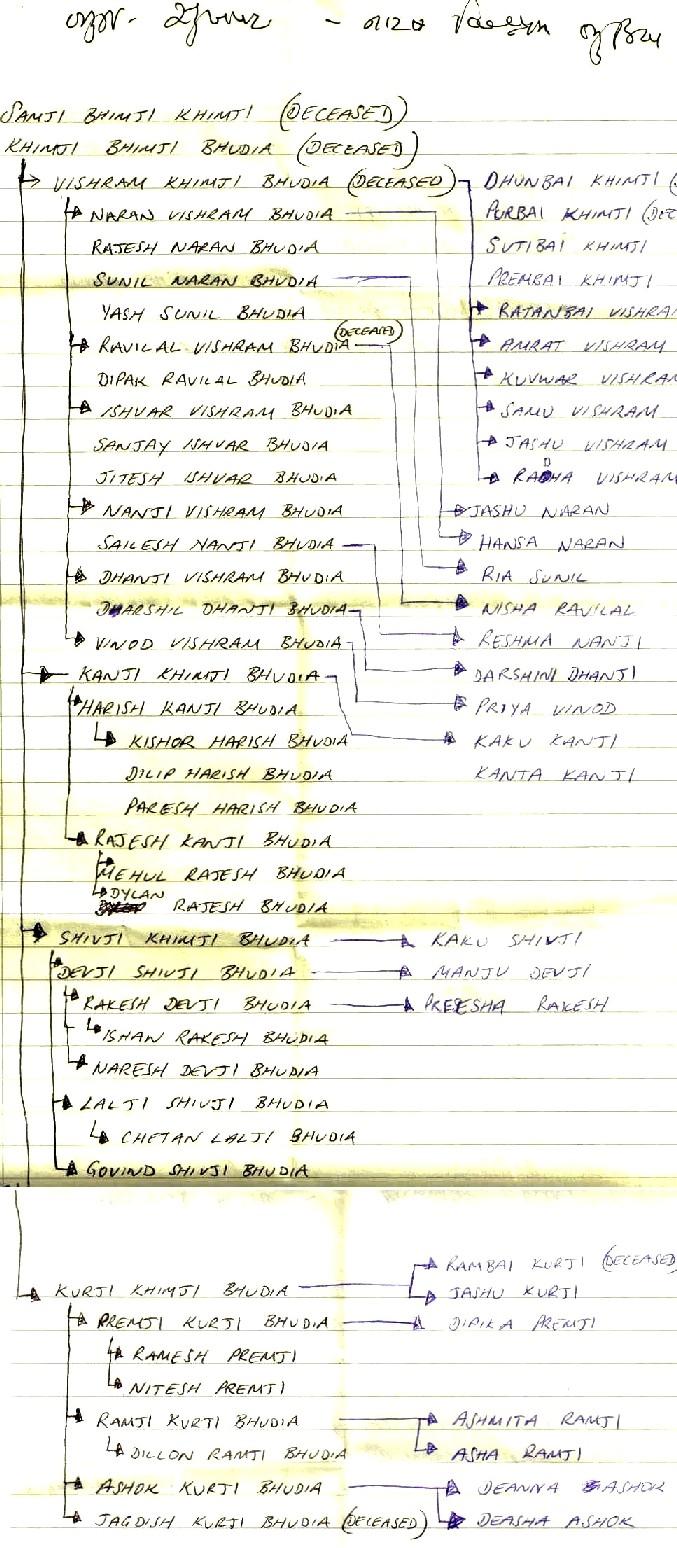 SAMJI BHIMJI KHIMJI (DECEASED)
KHIMJI BHIMJI BHUDIA (DECEASED)
VISHRAM KHIMJI BHUDIA (DECEASED) DHUNBAI KHIMJI
NARAN VISHRAM BHUDIA PURBAI KHIMJI
RAJESH NARAN BHUDIA SUTIBAI KHIMJI
SUNIL NARAN BHUDIA PREMBAI KHIMJI
YASH SUNIL BHUDIA RATANBAI VISHRA
(DECEASED)
RAVILAL VISHRAM BHUDIA AMRAT VISHRAM
DIPAK RAVILAL BHUDIA KUVWAR VISHRAM
ISHVAR VISHRAM BHUDIA SAMU VISHRAM
SANJAY ISHVAR BHUDIA JASHU VISHRAM
JITESH ISHVAR BHUDIA RADHA VISHRAM
NANJI VISHRAM BHUDIA JASHU NARAN
SAILESH NANJI BHUDIA HANSA NARAN
DHANJI VISHRAM BHUDIA RIA SUNIL
DHARSHIL DHANJI BHUDIA NISHA RAVILAL
VINOD VISHRAM BHUDIA RESHMA NANJI
KANJI KHIMJI BHUDIA DARSHINI DHANJI
HARISH KANJI BHUDIA PRIYA VINOD
KISHOR HARISH BHUDIA KAKU KANJI
DILIP HARISH BHUDIA KANTA KANJI
PARESH HARISH BHUDIA
RAJESH KANJI BHUDIA
MEHUL RAJESH BHUDIA
DYLAN
RAJESH BHUDIA
SHIVJI KHIMJI BHUDIA KAKU SHIVJI
DEVJI SHIVJI BHUDIA MANJU DEVJI
RAKESH DEVJI BHUDIA PREESHA RAKESH
ISHAN RAKESH BHUDIA
NARESH DEVJI BHUDIA
LALJI SHIVJI BHUDIA
CHETAN LALJI BHUDIA
GOVIND SHIVJI BHUDIA
RAMBAI KURJI (DECEASED)
KURJI KHIMJI BHUDIA JASHU KURJI
PREMJI KURJI BHUDIA DIPIKA PREMJI
RAMESH PREMJI
NITESH PREMJI
RAMJI KURJI BHUDIA ASHMITA RAMJI
DILLON RAMJI BHUDIA ASHA RAMJI
ASHOK KURJI BHUDIA DEANNA ASHOK
JAGDISH KURJI BHUDIA (DECEASED) DEASHA ASHOK